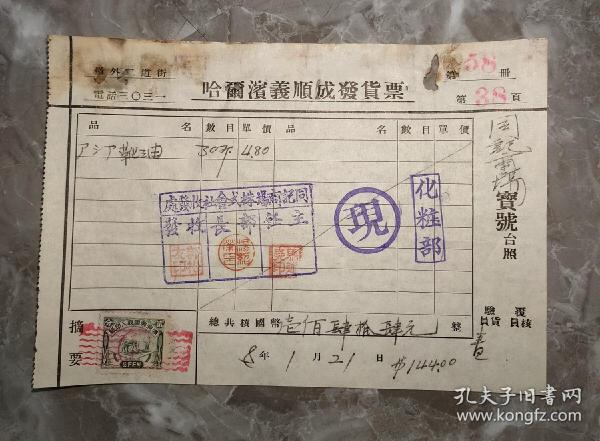 道外二道街
電話三〇三一
哈爾濱義順成發貨票
第 58 冊
第 38 頁
品 名 數目 單價 品 名 數目 單價
アジア靴油 30 4.80
同記商場株式會社收發處
主 社 部 長 收 發
現
化粧部
同記商場 寶號 台照
總共核國幣 壹佰肆拾肆元 整
驗貨員 覆核員
摘要
8 年 1 月 21 日 #144.00
孔夫子旧书网
www.kongfz.com